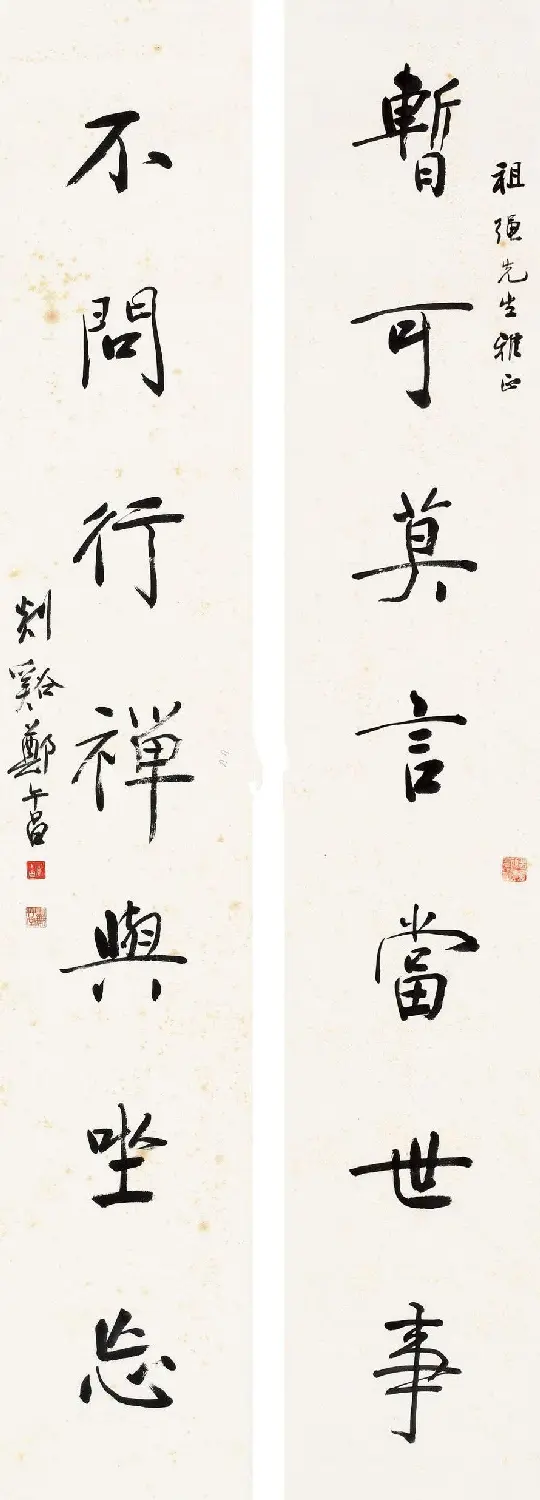 祖強先生雅正
暫可莫言當世事
不問行禪與坐忘
剡谿鄭午昌